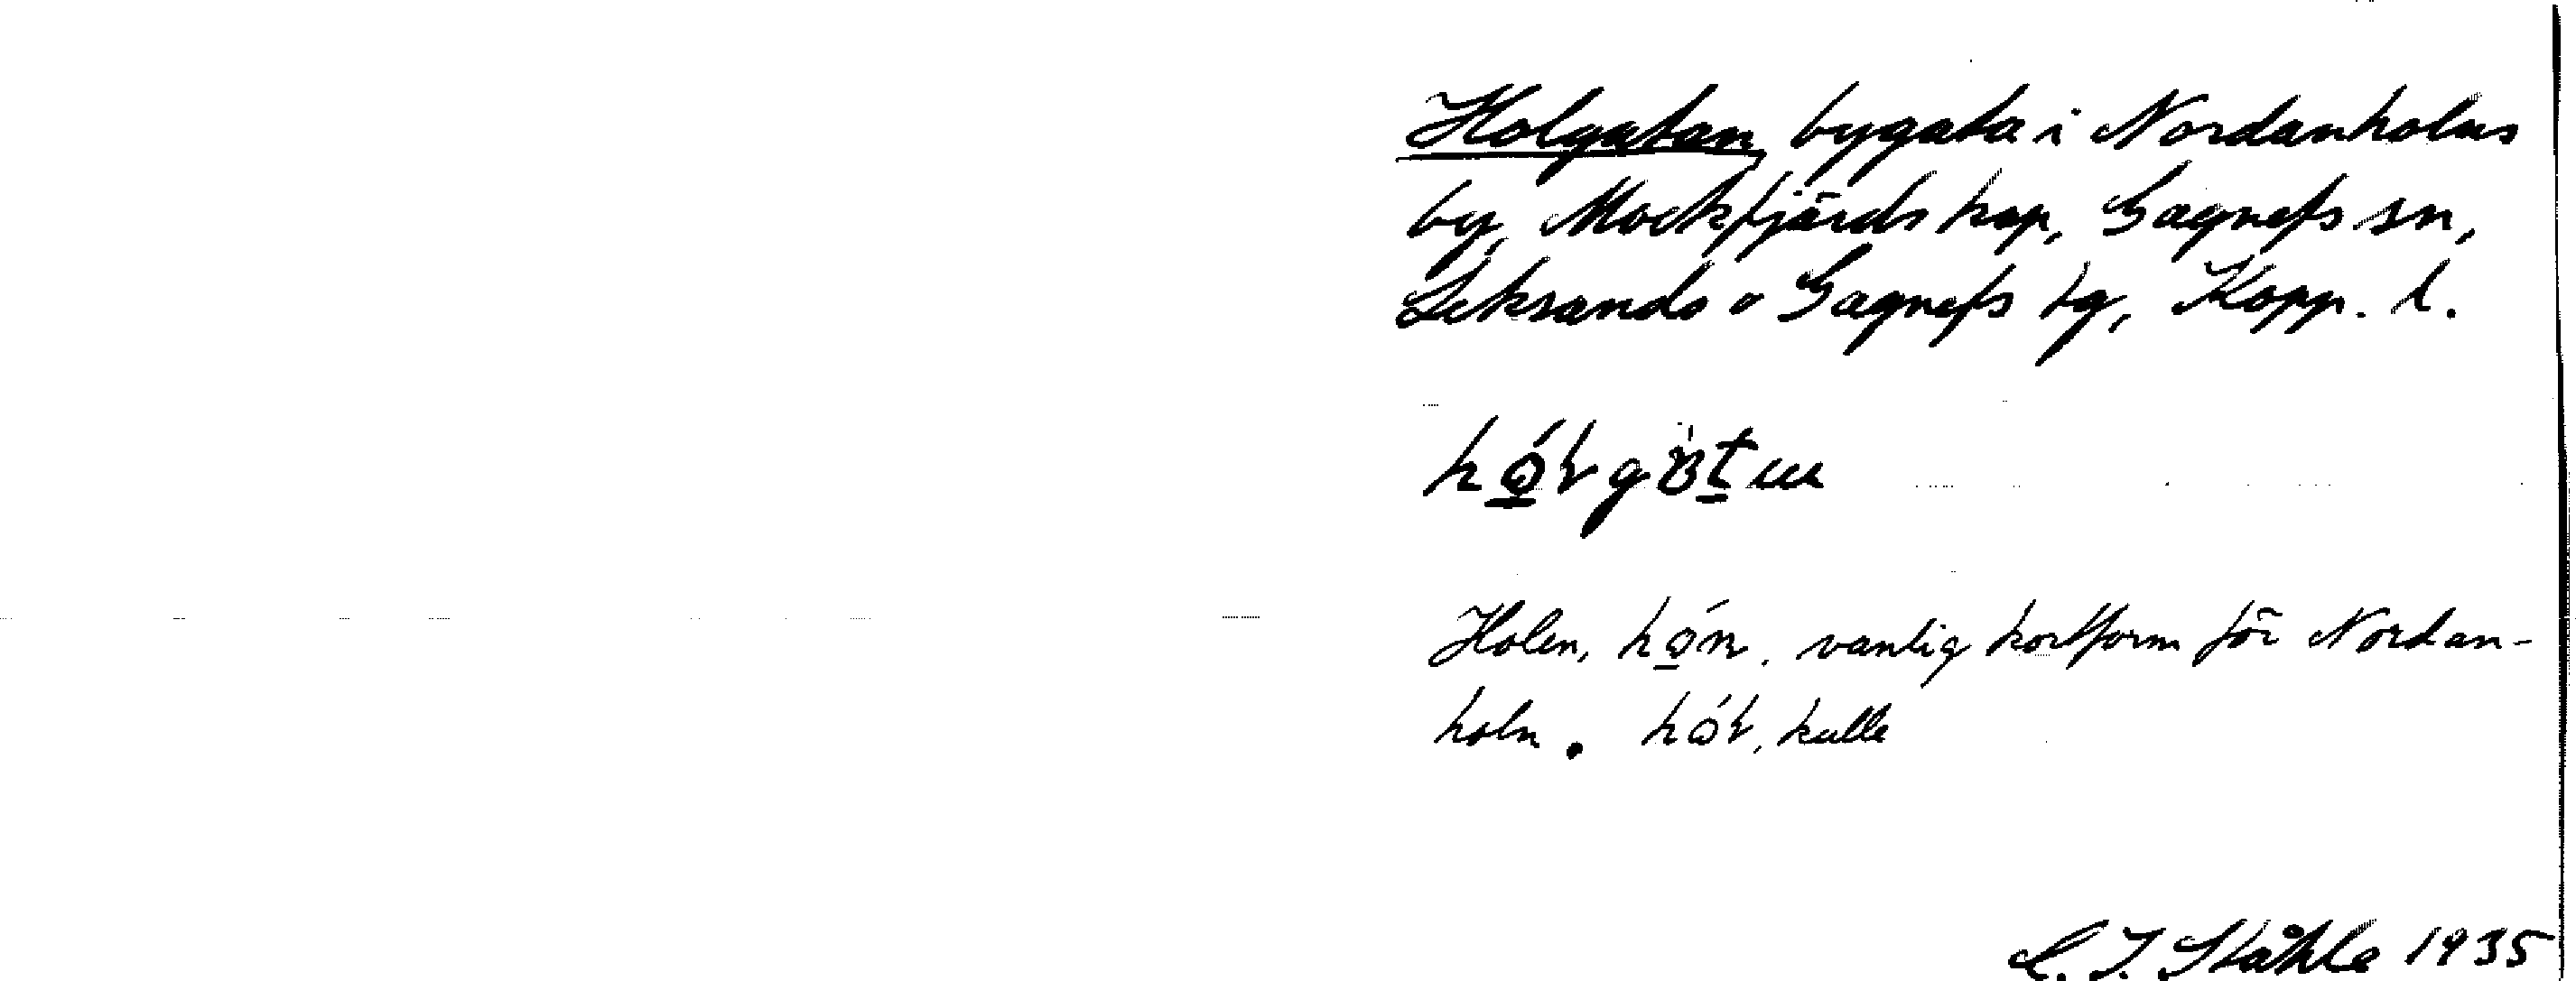 Holgatan, bygata i Nordanholns
by, Mockfjärds kap, Gagnefs sn,
Leksands o Gagnefs tg, Kopp. l.
Holen, vanlig kortform för Nordan-
holn. kulle
C. I. Ståhle 1935